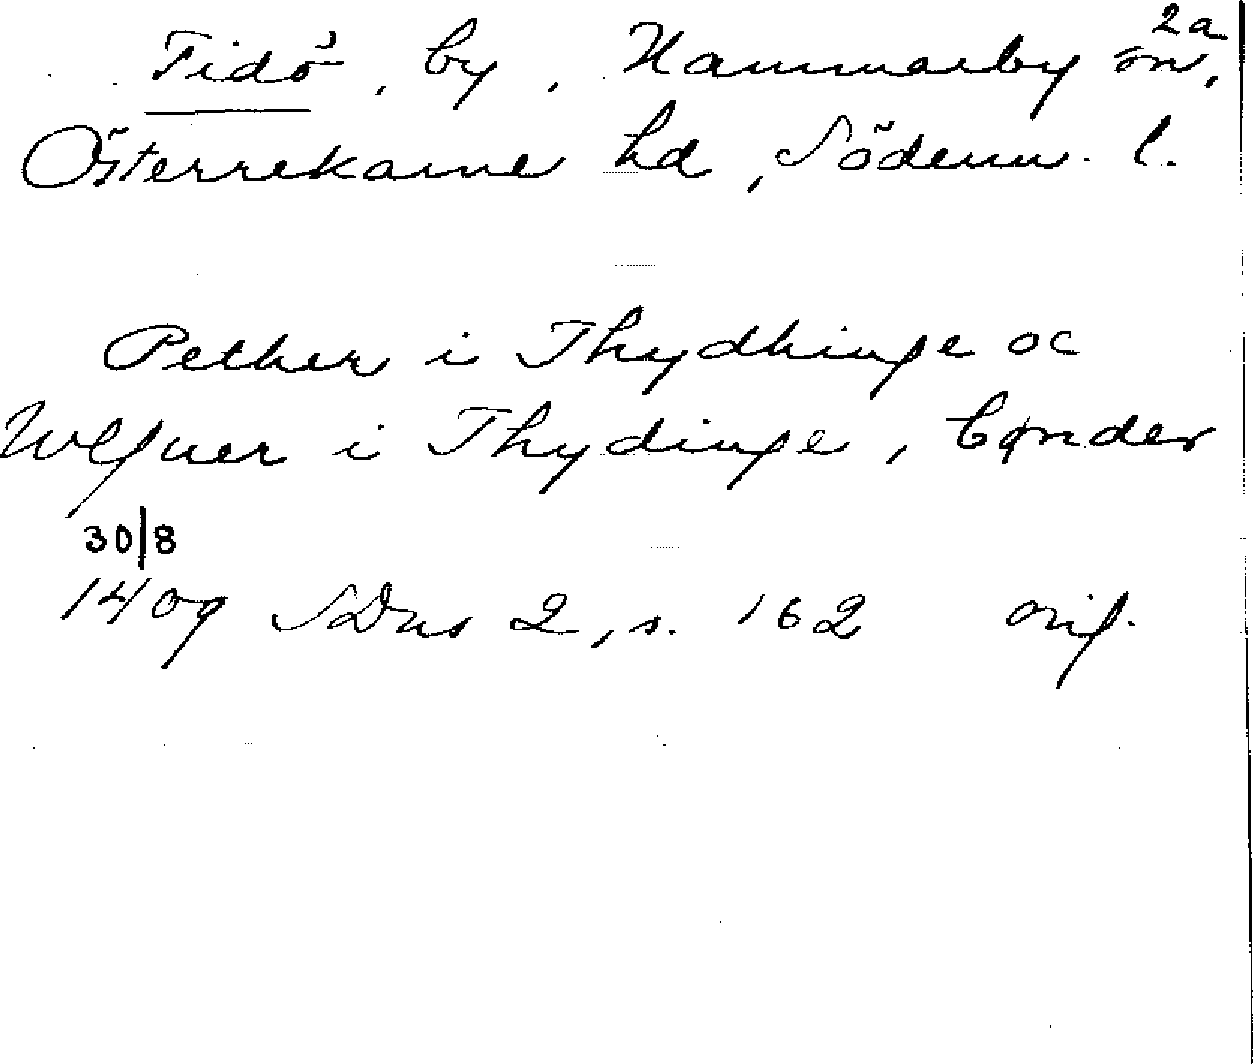 2a
Tidö, by, Hammarby sn,
Österrekarne hd, Söderm. l.
Pether i Thydhinge oc
Ulfuer i Thydinge, bønder
30/8
1409 SDns 2, s. 162 orig.